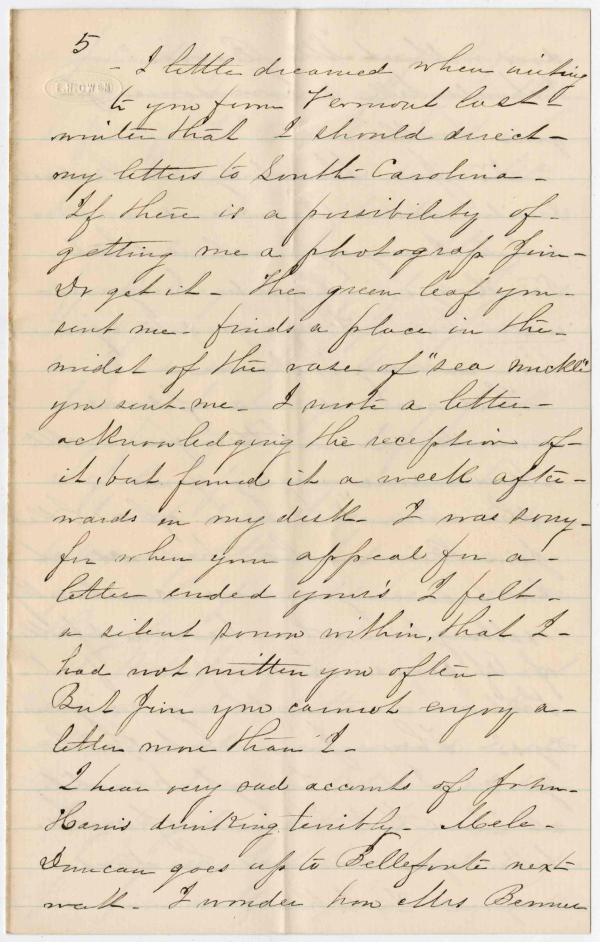 5
- I little dreamed when writing
E.H. OWEN
to you from Vermont last -
winter that I should direct -
my letters to South Carolina -
If there is a possibility of -
getting me a photograp Jim -
Do get it - The green leaf you -
sent me - finds a place in the -
midst of the vase of "sea
you sent me - I wrote a letter -
acknowledging the reception of -
it, but found it a week after -
wards in my desk - I was sorry -
for when your appeal for a -
letter ended your's I felt -
a silent sorrow within, that I -
had not written you often -
But Jim you cannot enjoy a -
letter more than I -
I hear very sad accounts of John -
Harris drinking terribly - Mele -
Duncan goes up to Bellefonte next
week - I wonder how Mrs Benner